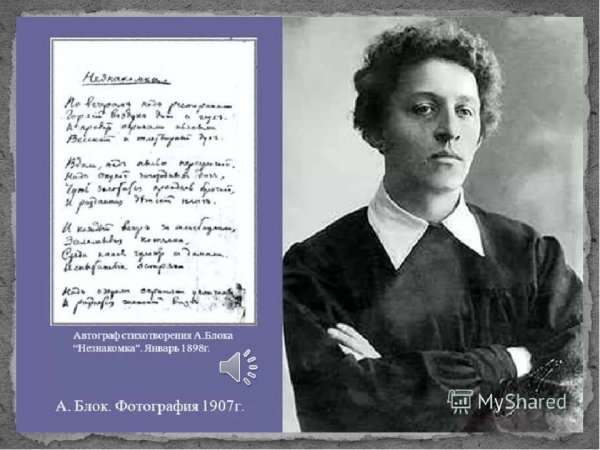 Незнакомка.
По вечерамъ надъ ресторанами
Горячій воздухъ дикъ и глухъ,
И правитъ окриками пьяными
Весенній и тлетворный духъ.
Вдали, надъ пылью переулочной,
Надъ скукой загородныхъ дачъ,
Чуть золотится крендель булочной,
И раздается дѣтскій плачъ.
И каждый вечеръ, за шлагбаумами,
Заламывая котелки,
Среди канавъ гуляютъ съ дамами
Испытанные остряки.
Надъ озеромъ скрипятъ уключины,
И раздается женскій визгъ
Автограф стихотворения А.Блока
“Незнакомка”. Январь 1898г.
А. Блок. Фотография 1907г.
MyShared